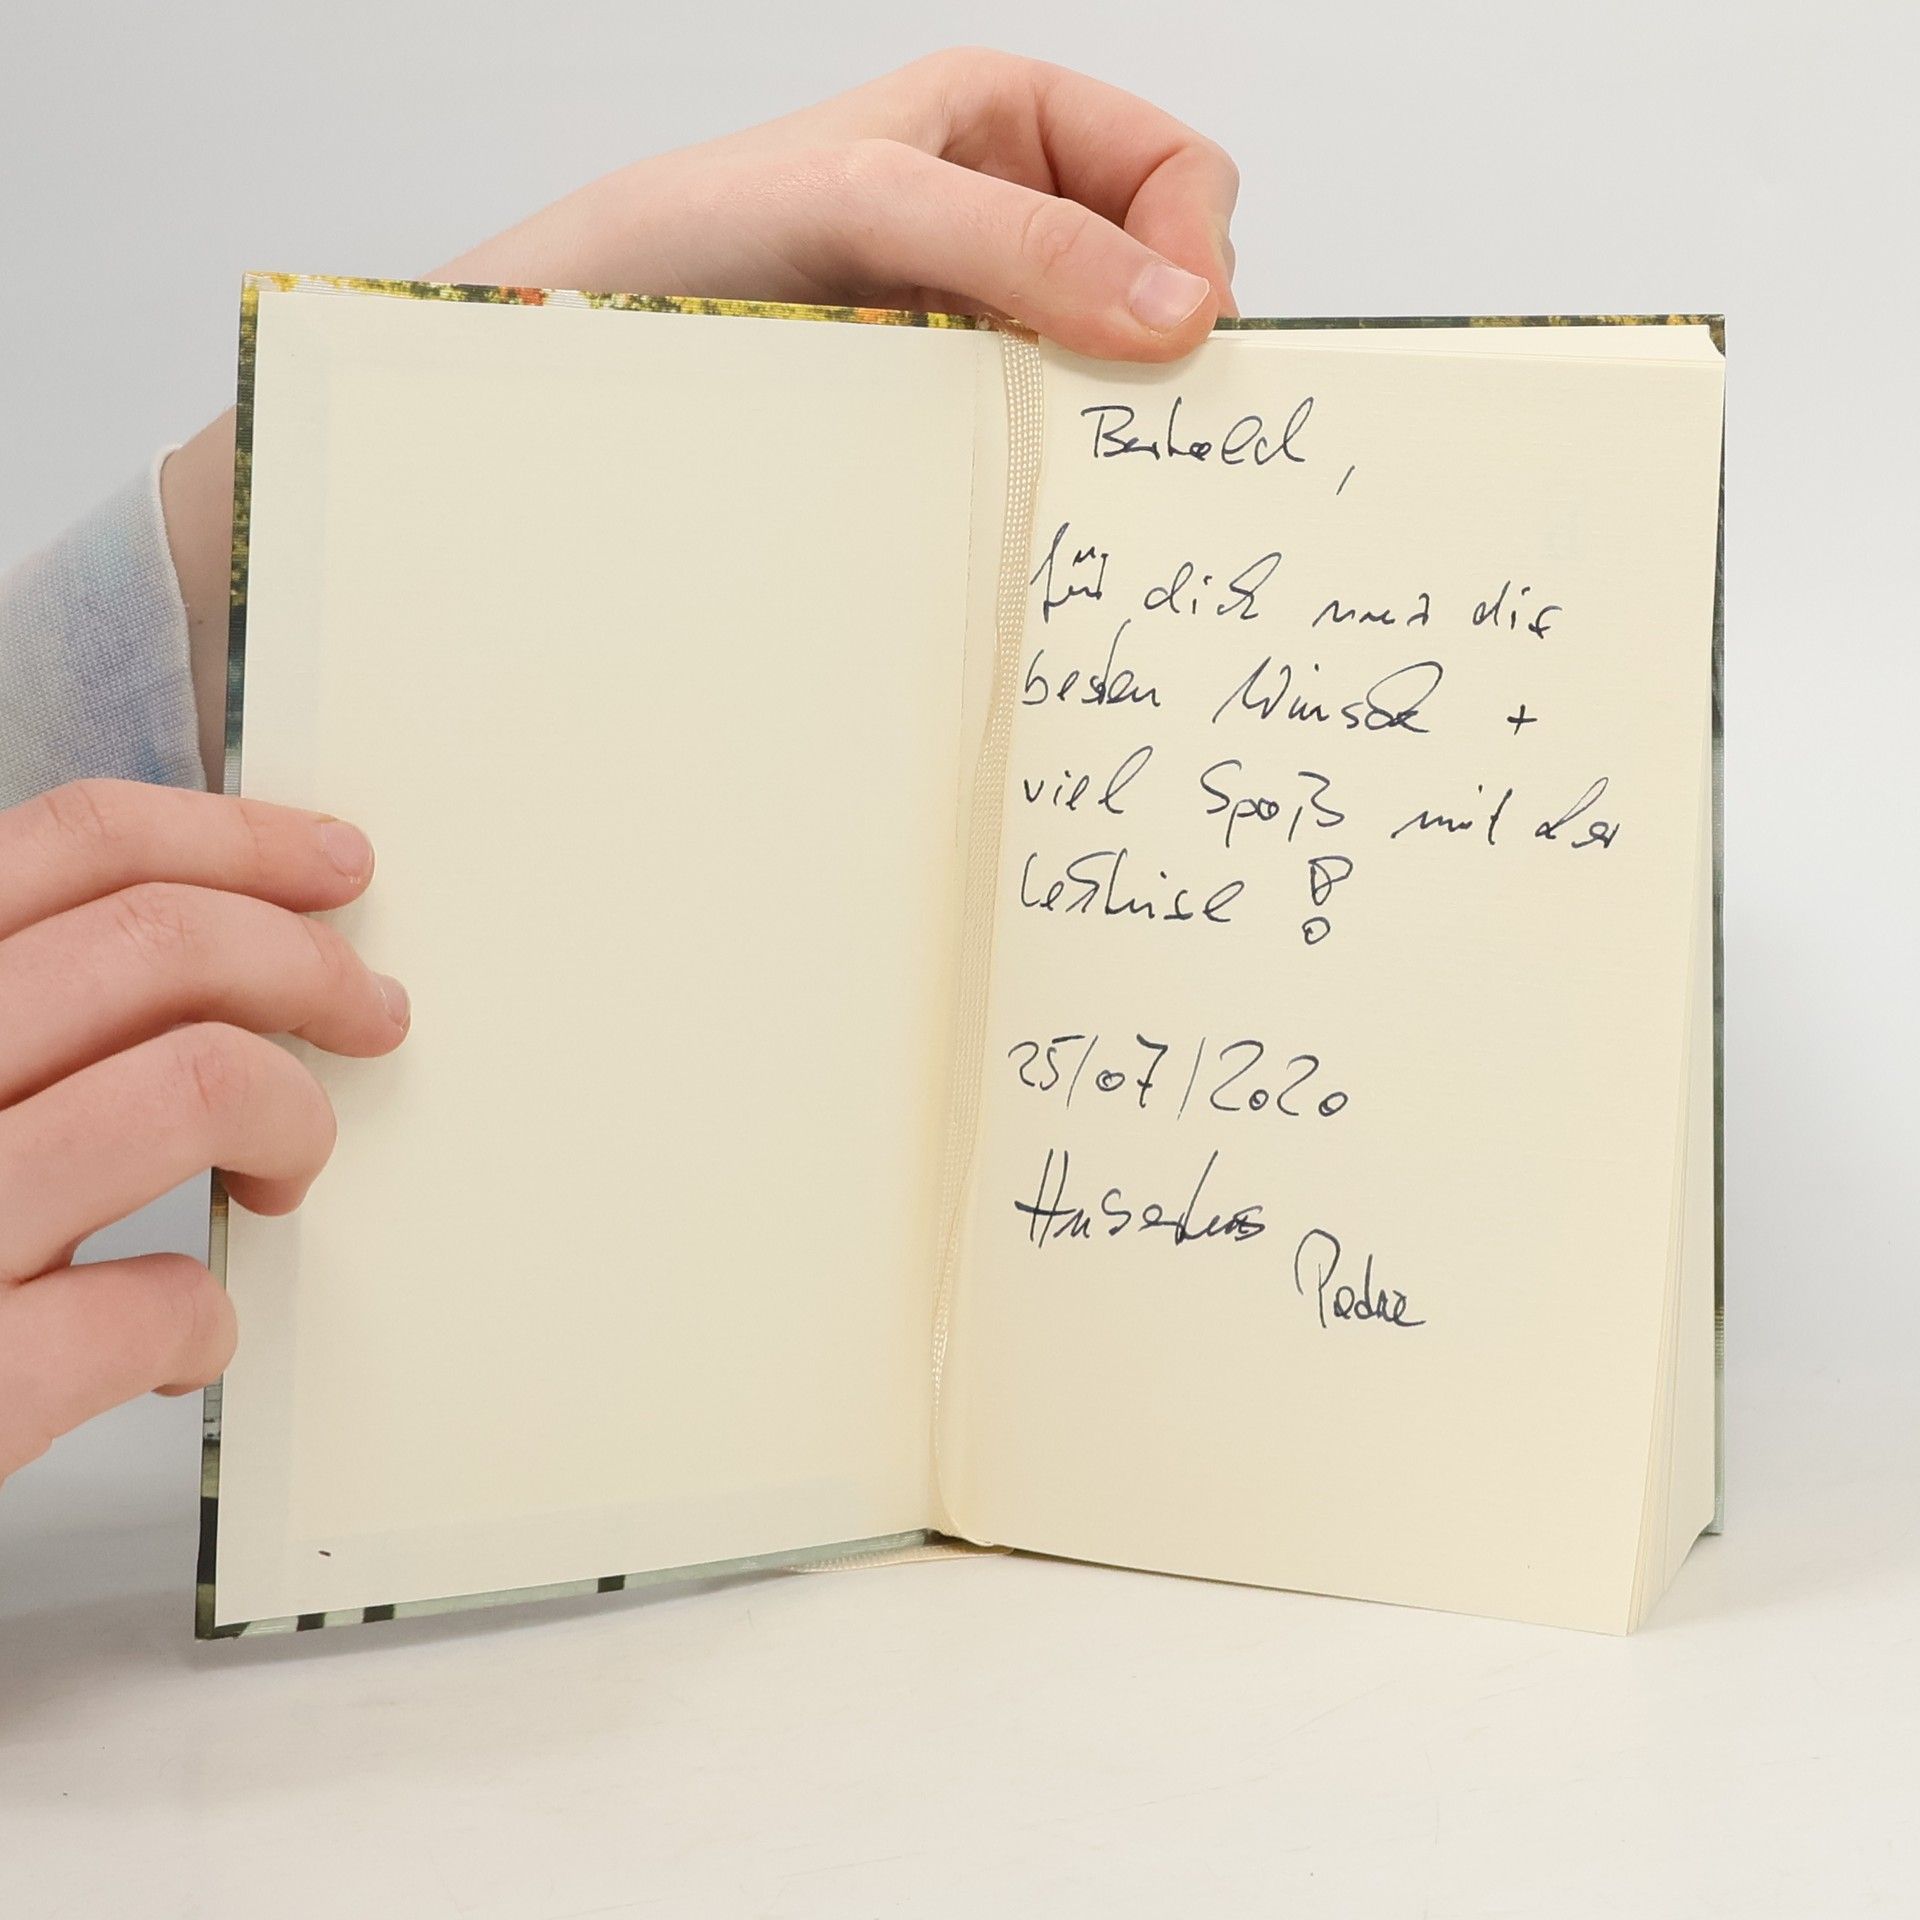 Berthold,
für dich nur die
besten Wünsche +
viel Spaß mit der
Lektüre !
25/07/2020
Hubertus
Padre